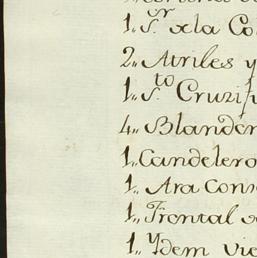 1,, S.or de la Co
2,, Atriles y
1,, S.to Cruzif
4,, Blander
1,, Candelero
1,, Ara Con
1,, Frontal
1,, Ydem vie